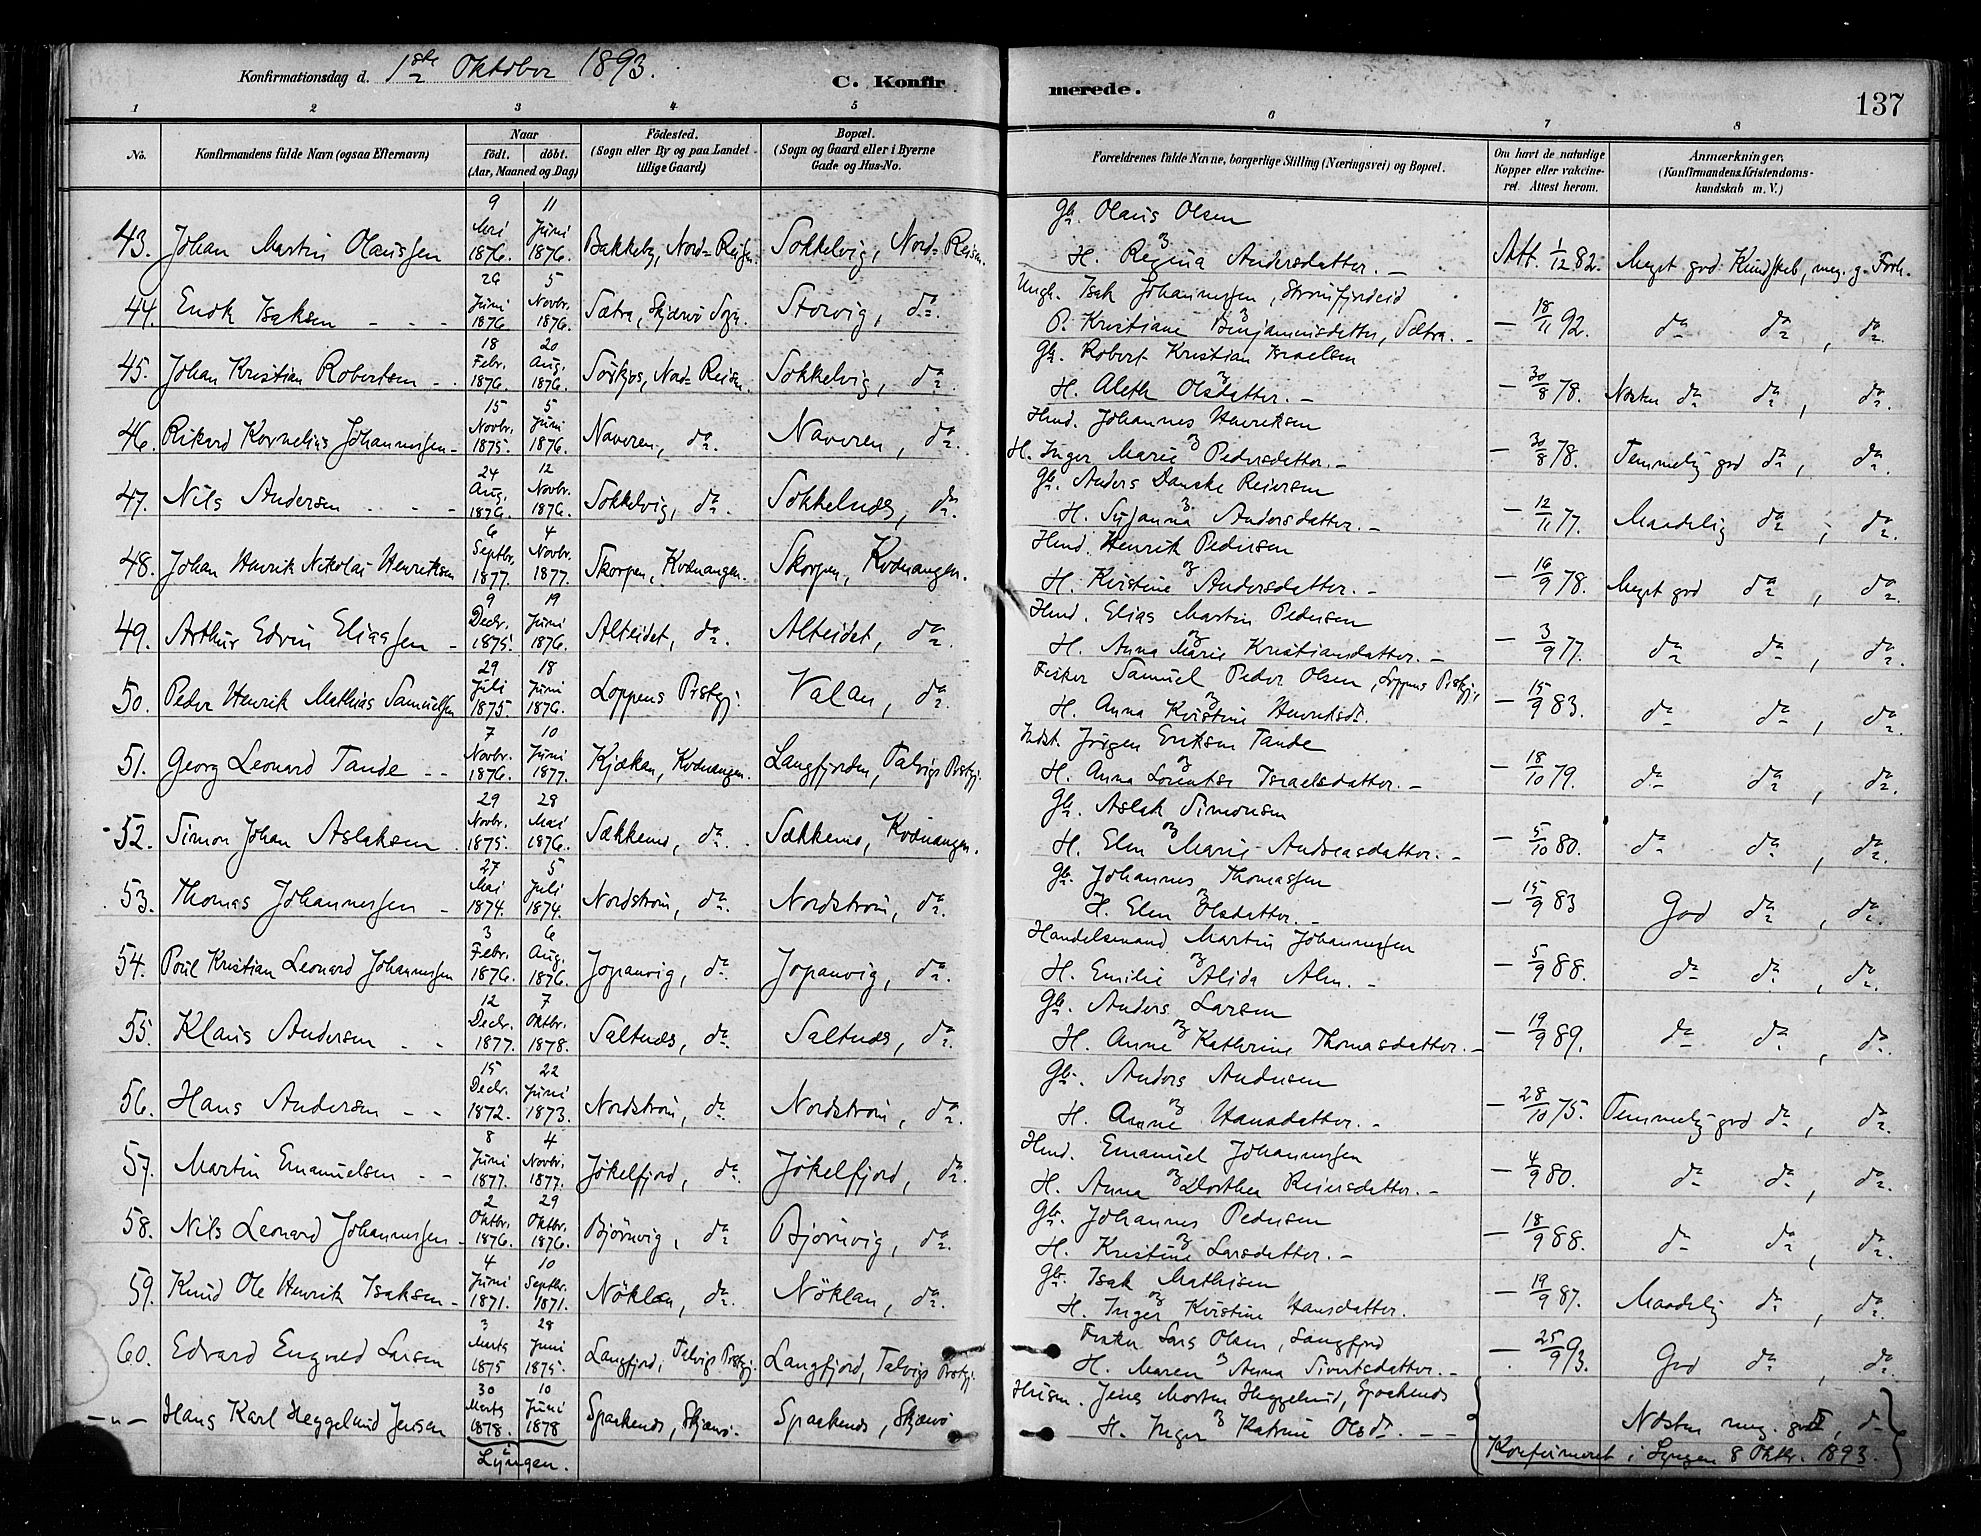 Konfirmationsdag d. 1ste Oktober 1893.
C. Konfirmerede.
137
1 2 3 4 5 6 7 8
No. | Konfirmandens fulde Navn (ogsaa Efternavn) | Naar født. døbt. (Aar, Maaned og Dag) | Födested. (Sogn eller By og paa Landet tillige Gaard) | Bopæl. (Sogn og Gaard eller i Byerne Gade og Hus-No. | Forældrenes fulde Navne, borgerlige Stilling (Næringsvei) og Bopæl. | Om havt de naturlige Kopper eller vakcineret. Attest herom. | Anmærkninger, (Konfirmandens Kristendomskundskab m. V.)
43. Johan Martin Olaussen | 9 Mai 1876. | 11 Juni 1876. | Bakkeby, Nord-Reisen. | Sokkelvig, Nord-Reisen. | Gbr. Olaus Olsen og H. Regina Andersdatter. – | Att. 1/12 82. | Meget god Kundskab, meg. g. Forh.
44. Enok Isaksen | 26 Juni 1876 | 5 Novbr. 1876. | Sætra, Skjærvö Sogn. | Storvig, do. | Ungk. Isak Johannessen, Straumfjordeid og P. Kristiane Benjaminsdatter, Sætra. – | – 18/11 92. | do do, do.
45. Johan Kristian Robertsen | 18 Febr. 1876. | 20 Aug. 1876. | Sörkjos, Nord-Reisen. | Sokkelvig, do. | Gbr. Robert Kristian Israelsen og H. Aleth Olsdatter. – | – 30/8 78. | Næsten do do, do.
46. Rikard Kornelius Johannessen | 15 Novbr. 1875. | 5 Juni 1876. | Naveren, do. | Naveren, do. | Hmd. Johannes Henriksen og H. Inger Marie Pedersdatter. – | – 30/8 78. | Temmelig god do, do.
47. Nils Andersen | 24 Aug. 1876. | 12 Novbr. 1876. | Sokkelvig, do. | Sokkelnes, do. | Gbr. Anders Danske Reiersen og H. Susanna Andersdatter. – | – 12/11 77. | Maadelig do, do.
48. Johan Henrik Nikolai Henriksen | 6 Septbr. 1877. | 4 Novbr. 1877. | Skorpen, Kvænangen. | Skorpen, Kvænangen. | Hmd. Henrik Pedersen og H. Kristine Andersdatter. – | – 16/9 78. | Meget god do, do.
49. Arthur Edvin Eliassen | 9 Decbr. 1875. | 19 Juni 1876. | Alteidet, do. | Alteidet, do. | Hmd. Elias Martin Pedersen og H. Anna Marie Kristiansdatter. – | – 3/9 77. | do do, do.
50. Peder Henrik Mathias Samuelsen | 29 Juli 1875. | 18 Juni 1876. | Loppens Prstgj. | Valan, do. | Fisker Samuel Peder Olsen, Loppens Prstgj., og H. Anna Kristine Henriksdt. | – 15/9 83. | do do, do.
51. Georg Leonard Tande | 7 Novbr. 1876. | 10 Juni 1877. | Kjækan, Kvænangen. | Langfjorden, Talvigs Prstgj. | Indst. Jörgen Eriksen Tande og H. Anna Lorentse Israelsdatter. – | – 18/10 79. | do do, do.
52. Simon Johan Aslaksen | 29 Novbr. 1875. | 28 Mai 1876. | Sækkemo, do. | Sækkemo, Kvænangen. | Gbr. Aslak Simonsen og H. Elen Marie Andreasdatter. – | – 5/10 80. | do do, do.
53. Thomas Johannessen | 27 Mai 1874. | 5 Juli 1874. | Nordström, do. | Nordström, do. | Gbr. Johannes Thomassen og H. Elen Olsdatter. – | – 15/9 83 | God do, do.
54. Poul Kristian Leonard Johannessen | 3 Febr. 1876. | 6 Aug. 1876. | Jopanvig, do. | Jopanvig, do. | Handelsmand Martin Johannessen og H. Emilie Alida Alm. – | – 5/9 88. | do do, do.
55. Klaus Andersen | 12 Decbr. 1877. | 7 Oktbr. 1878. | Saltnes, do. | Saltnes, do. | Gbr. Anders Larsen og H. Anne Kathrine Thomasdatter. – | – 19/9 89. | do do, do.
56. Hans Andersen | 15 Decbr. 1872. | 22 Juni 1873. | Nordström, do | Nordström, do. | Gbr. Anders Andersen og H. Anne Hansdatter. – | – 28/10 75. | Temmelig god do, do.
57. Martin Emanuelsen | 8 Juni 1877. | 4 Novbr. 1877. | Jökelfjord, do. | Jökelfjord, do. | Hmd. Emanuel Johannessen og H. Anna Dorthea Reiersdatter. – | – 4/9 80. | do do, do.
58. Nils Leonard Johannessen | 2 Oktbr. 1876. | 29 Oktbr. 1876. | Björnvig, do | Björnvig, do. | Gbr. Johannes Pedersen og H. Kristine Larsdatter. – | – 18/9 88. | do do, do.
59. Knud Ole Henrik Isaksen | 4 Juni 1871. | 10 Septbr. 1871. | Nöklan, do. | Nöklan, do. | Gbr. Isak Mathisen og H. Inger Kristine Hansdatter. | – 19/9 87. | Maadelig do, do.
60. Edvard Engvald Larsen | 3 Marts 1875 | 28 Juni 1875. | Langfjord, Talvigs Prstgj. | Langfjord, Talvigs Prstgj. | Fisker Lars Olsen, Langfjord og H. Maren Anna Sivertsdatter. – | – 25/9 93. | God do, do.
–"– Hans Karl Heggelund Jensen | 30 Marts 1878. | 10 Juni 1878 | Spaakenes, Skjærvö. | Spaakenes, Skjærvö | Husm. Jens Morten Heggelund, Spaakenes og H. Inger Katrine Olsdt. – – | Næsten meg. god, do
i Lyngen.
Konfirmeret i Lyngen 8 Oktbr. 1893.